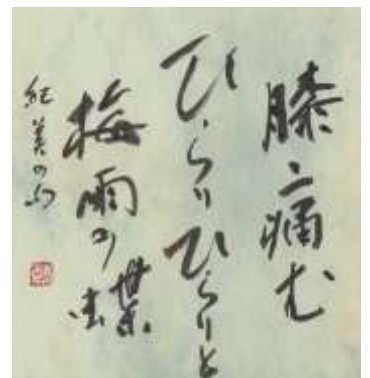 膝こ痛む
ひらりひらりと
梅雨の蝶
紀美の句